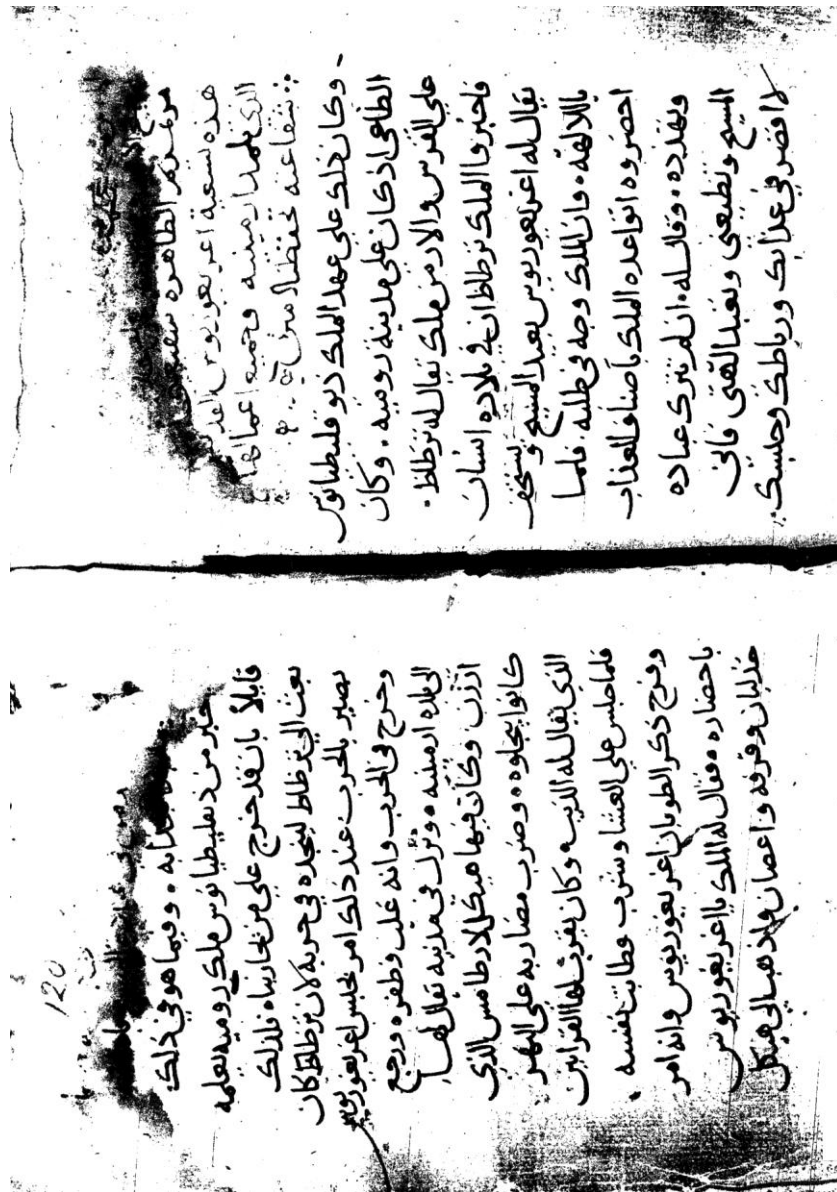 هذه نسعية اغريغوريوس
الذي تلمذ ارمينيه وجميع اعمالها
شفاعته تحفظنا امين
وكان ذلك على عهد الملك ذيوقلطيانوس
الطاغي اذ كان على مدينة روميه • وكان
علي الفرس والارمن ملك يقال له ترطاط •
فاخبروا الملك ترطاط ان في بلاده انسان
يقال له اغريغوريوس يعبد المسيح ويستخف
باللالهه • وان الملك وجه في طلبه • فلما
احضروه اتواعده الملك باصناف العذاب
وتهدده • وقال له • ان لم تترك عباده
المسيح وتطيعني وتعبد الهتي فاني
لا اقصر في عذابك ورباطك وحبسك
120
وفيما هو في ذلك
خبر من ذيقليطيانوس ملك روميه يعلمه
قايلاً بان قد خرج علي من يحاربناه فلذلك
بعث الي ترطاط لينجده في حربه لان ترطاط كان
بصير بالحرب عند ذلك امر بحبس اغريغوريوس
وخرج في الحرب وانه غلب وظفر • ورجع
الى بلاده ارمينيه • ونزل في مدينه يقال لها
ارزن وكان فيها هيكل لارطامس الذي
كانوا يجلوه • وضرب مضاربه على النهر
الذي يقال له الذيب • وكان يقرب لها القرابين
فلما جلس على العشا وشرب وطابت نفسه •
وفرح ذكر الطوبان اغريغوريوس وانه امر
باحضاره • فقال له الملك يا اغريغوريوس
خذ لبان وقرفه واغصان واذهب الي هيكل